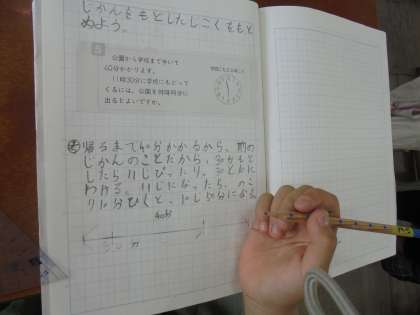 じかんをもとしたしこくをもと
めよう。
5
公園から学校まで歩いて
40分かかります。
11時30分に学校にもどって
くるには、公園を何時何分に
出るとよいですか。
学校にもどる時こく
帰るまで40分かかるから、前の
じかんのことだから、30分もと
したら11じぴったり、30と10に
わける。11じになったら、のこ
り10分ひくと、10じ50分になる
40分